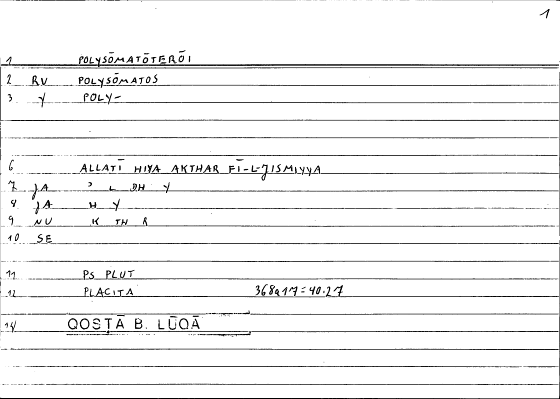 1
1 POLYSŌMATŌTERŌI
2 RV POLYSŌMATOS
3 Y POLY-
6 ALLATĪ HIYA AKTHAR FĪ-L-JISMIYYA
7 JA ʾ L DH Y
8 JA H Y
9 NU K TH R
10 SE
11 PS PLUT
12 PLACITA 368a17=40.27
14 QOSṬĀ B. LŪQĀ